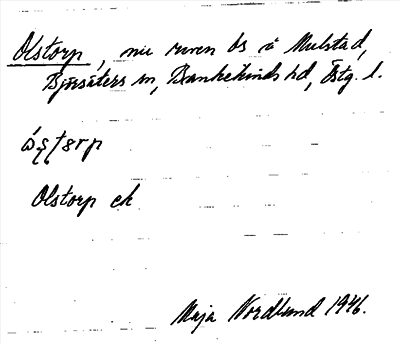 Olstorp, nu även bs å Mulstad,
Björsäters sn, Bankekinds hd, Östg. l.
Olstorp ek
Maja Nordlund 1946.